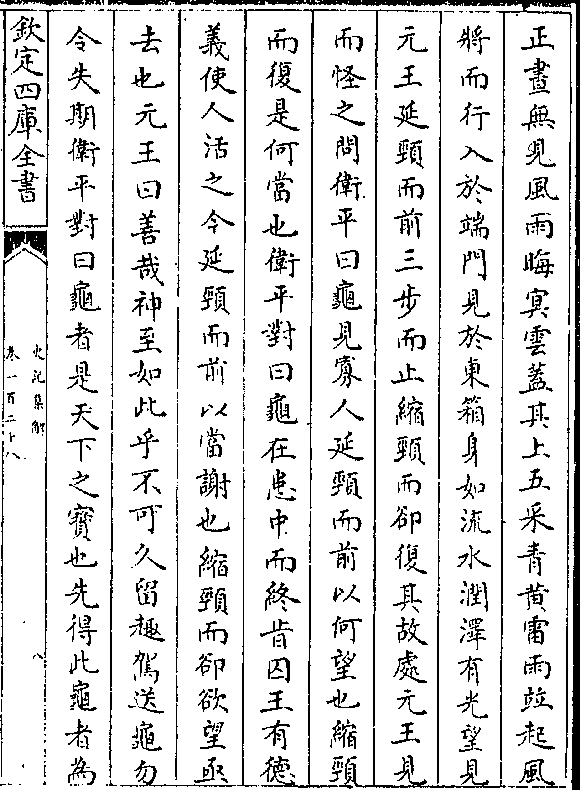 正晝無見風雨晦冥雲蓋其上五采青黄雷雨竝起風
將而行入於端門見於東箱身如流水潤澤有光望見
元王延頸而前三步而止縮頸而卻復其故處元王見
而怪之問衛平曰龜見寡人延頸而前以何望也縮頸
而復是何當也衛平對曰龜在患中而終昔囚王有德
義使人活之今延頸而前以當謝也縮頸而卻欲望亟
去也元王曰善哉神至如此乎不可久留趣駕送龜勿
令失期衛平對曰龜者是天下之寶也先得此龜者為
欽定四庫全書
史記集解
卷一百二十八
八